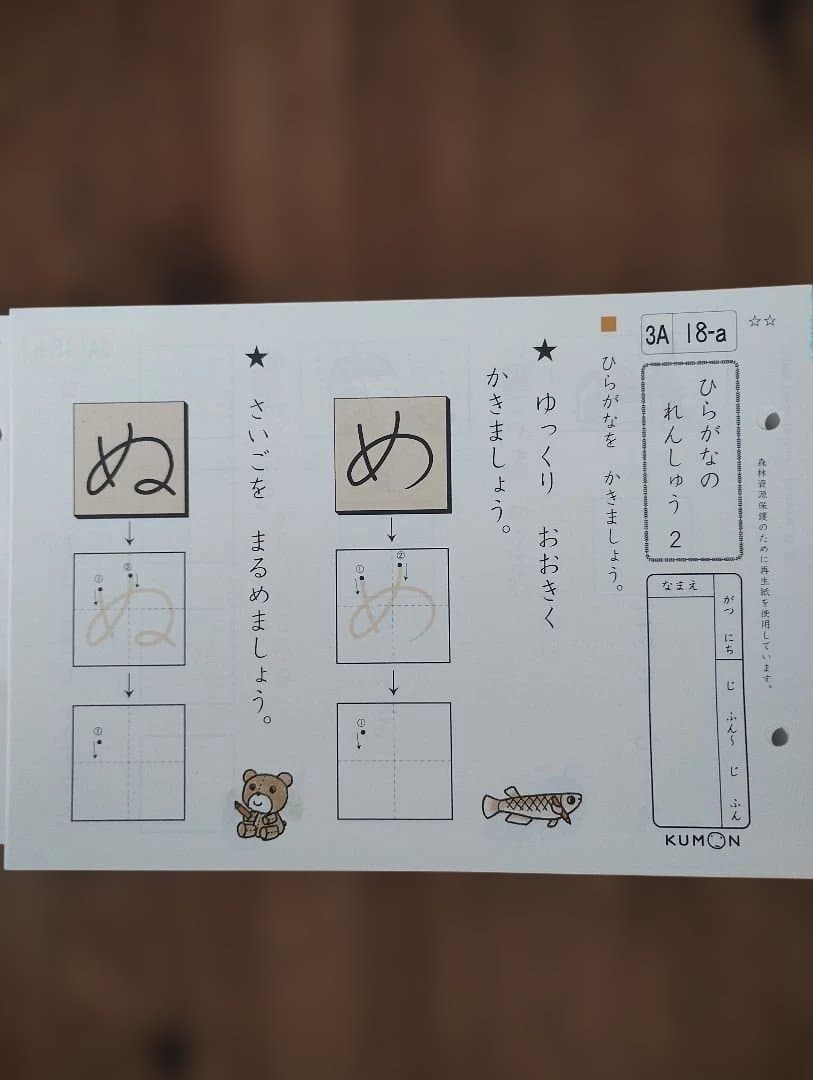 ☆☆
3A 18-a
ひらがなの
れんしゅう 2
がつ にち
じ ふん〜 じ ふん
なまえ
KUMON
森林資源保護のために再生紙を使用しています。
■ ひらがなを かきましょう。
★ ゆっくり おおきく
かきましょう。
め
① ②
め
①
★ さいごを まるめましょう。
ぬ
① ②
ぬ
①